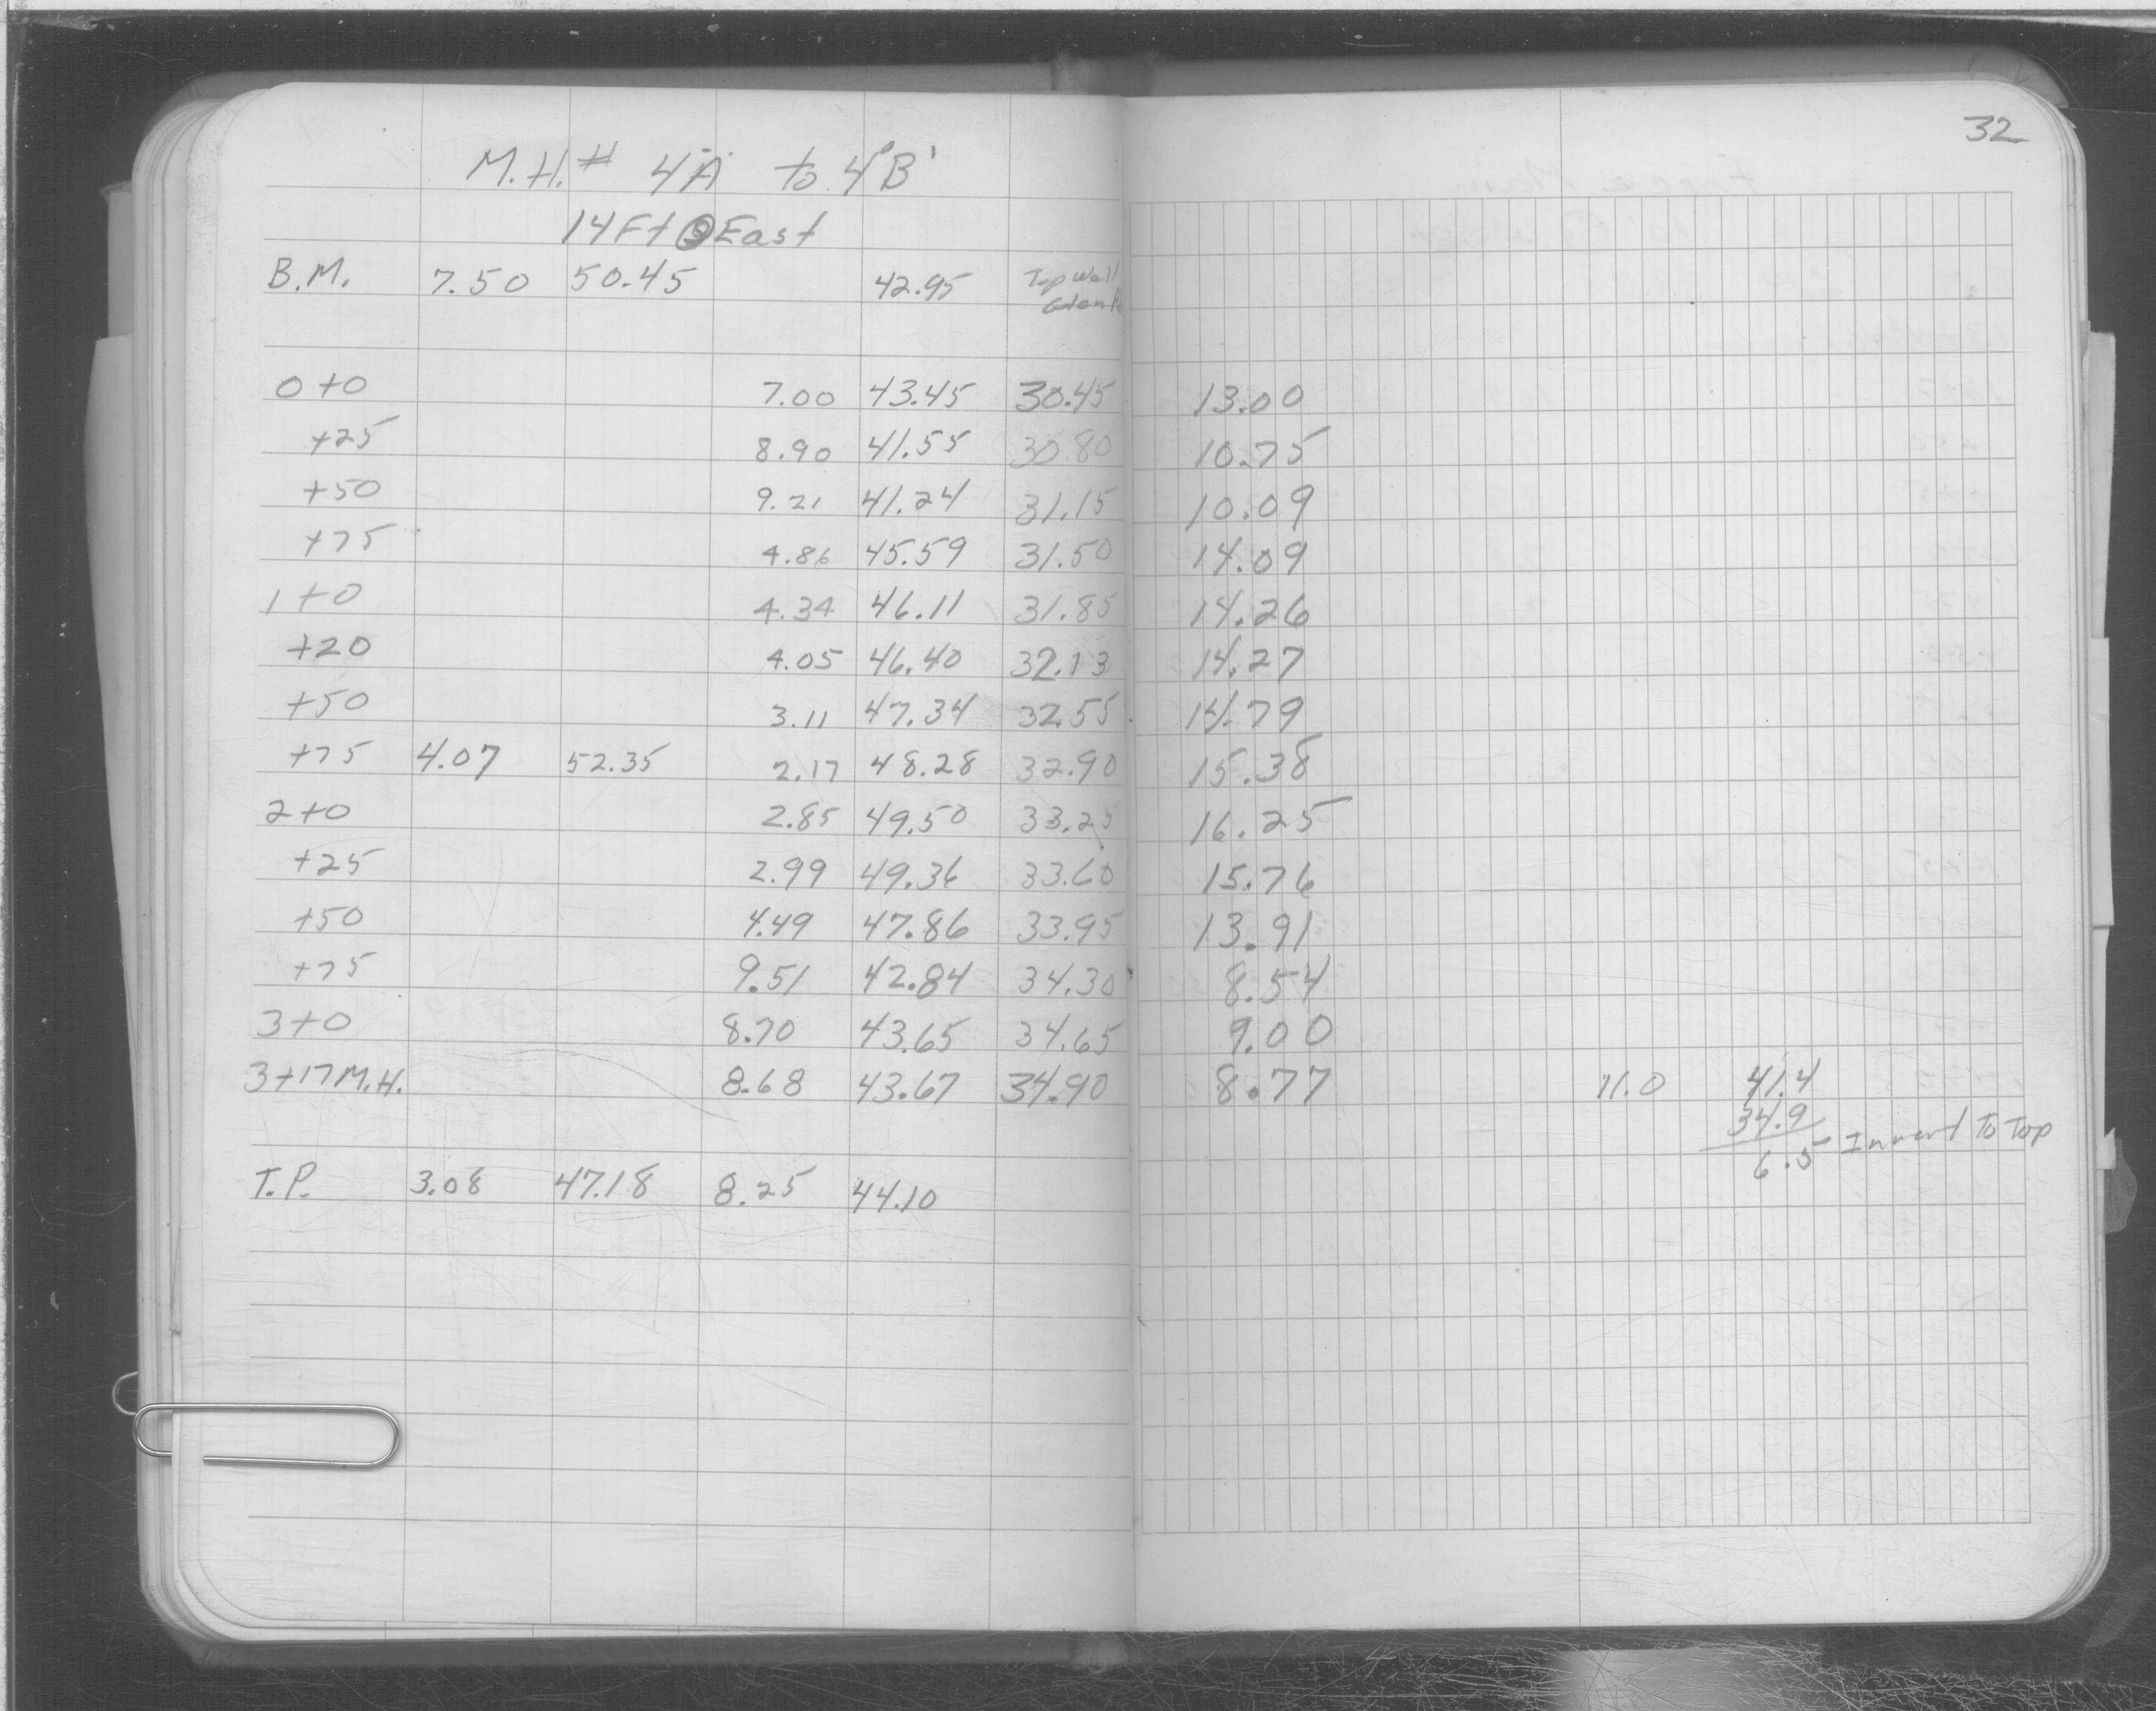 32
M.H.# 4"A" to 4"B"
14 Ft East
B.M. 7.50 50.45 42.95 Top Wall
0+0 7.00 43.45 30.45 13.00
+25 8.90 41.55 30.80 10.75
+50 9.21 41.24 31.15 10.09
+75 4.86 45.59 31.50 14.09
1+0 4.34 46.11 31.85 14.26
+20 4.05 46.40 32.13 14.27
+50 3.11 47.34 32.55 14.79
+75 4.07 52.35 2.17 48.28 32.90 15.38
2+0 2.85 49.50 33.25 16.25
+25 2.99 49.36 33.60 15.76
+50 4.49 47.86 33.95 13.91
+75 9.51 42.84 34.30 8.54
3+0 8.70 43.65 34.65 9.00
3+17 M.H. 8.68 43.67 34.90 8.77 11.0 41.4
34.9
6.5 Invert To Top
T.P. 3.08 47.18 8.25 44.10